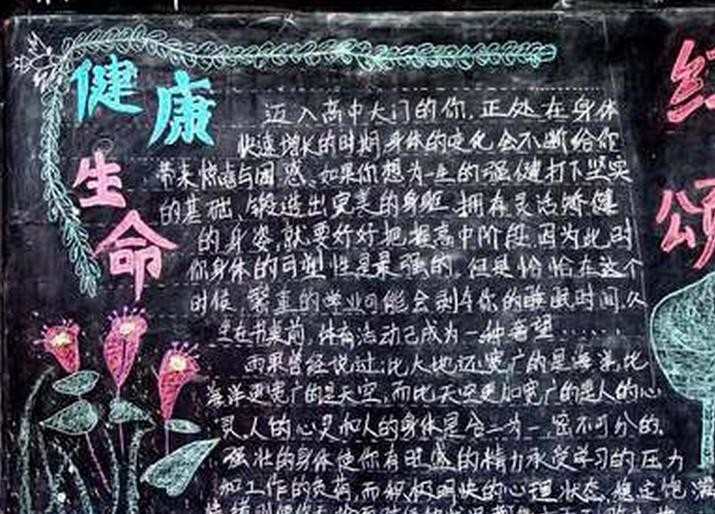 健康
生命
迈入高中大门的你,正处在身体
快速增长的时期,身体的变化会不断给你
带来惊喜与困惑。如果你想为一生的强健打下坚实
的基础、锻造出完美的身躯、拥有灵活矫健
的身姿,就要好好把握高中阶段,因为此时
你身体的可塑性是最强的。但是恰恰在这个
时候,繁重的学业可能会剥夺你的睡眠时间,久
坐在书桌前,体育活动已成为一种奢望……
雨果曾经说过:比大地还宽广的是海洋,比
海洋更宽广的是天空,而比天空更加宽广的是人的心
灵。人的心灵和人的身体是合二为一,密不可分的。
强壮的身体使你有旺盛的精力承受学习的压力
和工作的负荷,而积极明快的心理状态,稳定饱满
红
颂